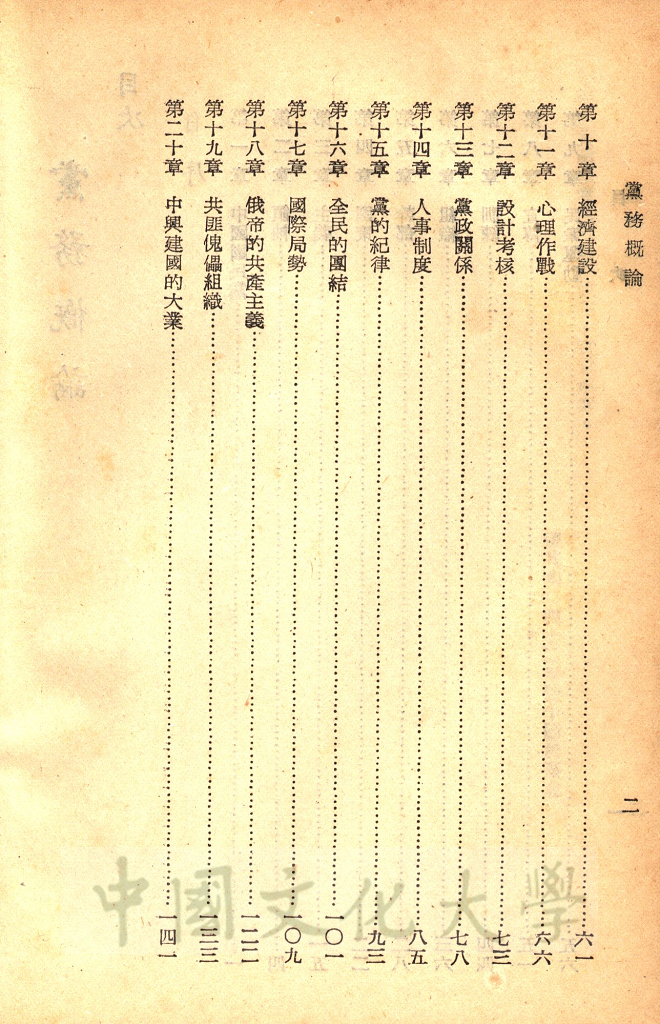 黨務概論
二
第十章　經濟建設……六一
第十一章　心理作戰……六六
第十二章　設計考核……七三
第十三章　黨政關係……七八
第十四章　人事制度……八五
第十五章　黨的紀律……九三
第十六章　全民的團結……一〇一
第十七章　國際局勢……一〇九
第十八章　俄帝的共產主義……一二二
第十九章　共匪傀儡組織……一三三
第二十章　中興建國的大業……一四一
中國文化大學